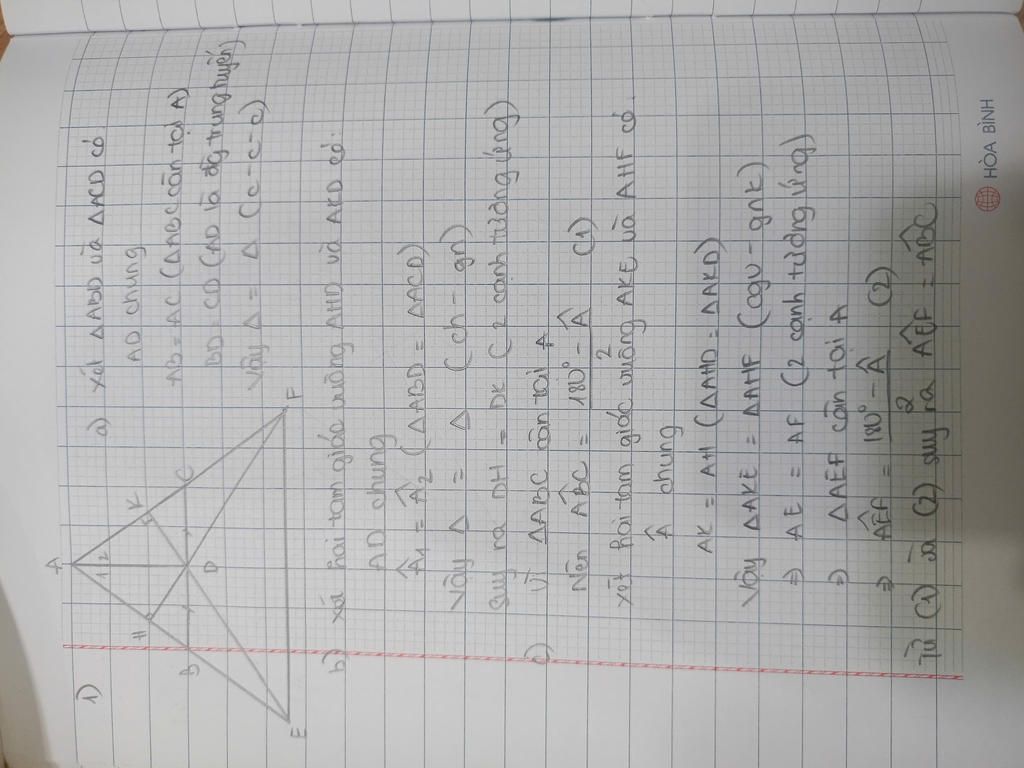 1)
A
1 2
H
K
B
D
C
E
F
a) Xét ΔABD và ΔACD có
AD chung
AB = AC (ΔABC cân tại A)
BD = CD (AD là đg trung tuyến)
Vậy Δ = Δ (c-c-c)
b) xét hai tam giác vuông AHD và AKD có:
AD chung
Â1 = Â2 (ΔABD = ΔACD)
Vậy Δ = Δ (ch - gn)
Suy ra DH = DK (2 cạnh tương ứng)
c) Vì ΔABC cân tại A
Nên ABC = 180° - Â / 2 (1)
xét hai tam giác vuông AKE và AHF có.
 chung
AK = AH (ΔAHD = ΔAKD)
Vậy ΔAKE = ΔAHF (cgv - gnk)
⇒ AE = AF (2 cạnh tương ứng)
⇒ ΔAEF cân tại A
⇒ AEF = 180° - Â / 2 (2)
Từ (1) và (2) suy ra AEF = ABC
HÒA BÌNH